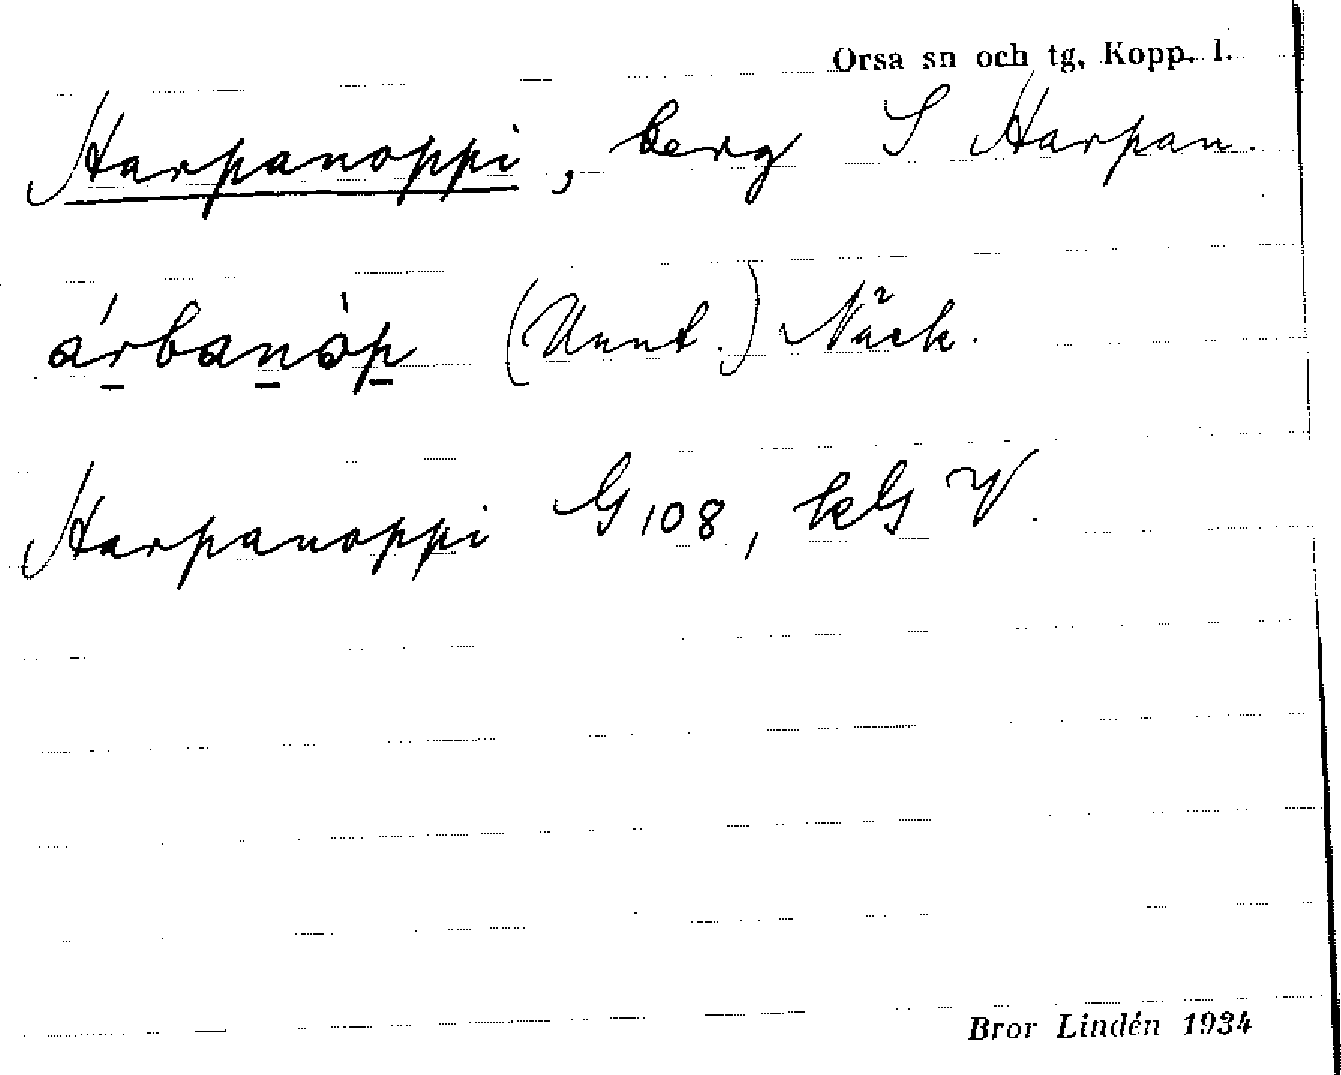 Orsa sn och tg, Kopp. l.
Harpanoppi, berg S Harpan.
árbanòp (Uunt.) Näck.
Harpanoppi G 108, kG V.
Bror Lindén 1934